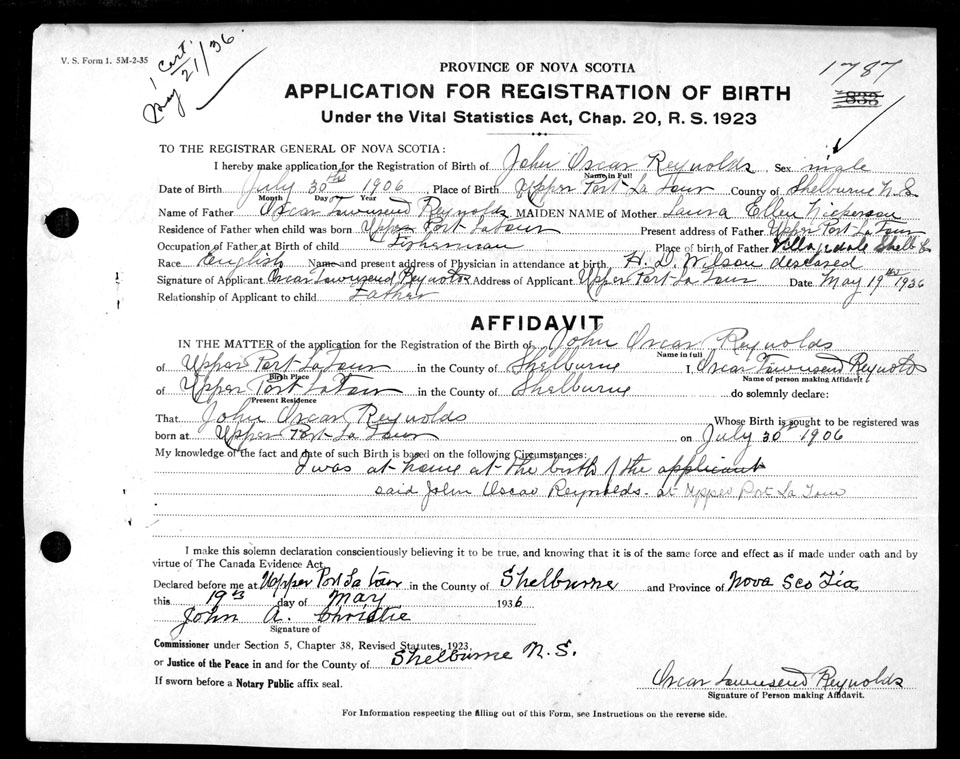 V. S. Form 1. 5M-2-35
1 Cert.
May 21/36
PROVINCE OF NOVA SCOTIA
1787
APPLICATION FOR REGISTRATION OF BIRTH
Under the Vital Statistics Act, Chap. 20, R. S. 1923
TO THE REGISTRAR GENERAL OF NOVA SCOTIA:
I hereby make application for the Registration of Birth of John Oscar Reynolds Sex male
Name in Full
Date of Birth July 30th 1906, Place of Birth Upper Port La Tour County of Shelburne N.S.
Month Day Year
Name of Father Oscar Townsend Reynolds MAIDEN NAME of Mother Laura Ellen Nickerson
Residence of Father when child was born Upper Port LaTour Present address of Father Upper Port La Tour
Occupation of Father at Birth of child Fisherman Place of birth of Father Villagedale Shelb Co
Race English Name and present address of Physician in attendance at birth H. D. Wilson deseased
Signature of Applicant Oscar Townsend Reynolds Address of Applicant Upper Port La Tour Date May 19th 1936
Relationship of Applicant to child Father
AFFIDAVIT
IN THE MATTER of the application for the Registration of the Birth of John Oscar Reynolds
Name in full
of Upper Port La Tour in the County of Shelburne I, Oscar Townsend Reynolds
Birth Place Name of person making Affidavit
of Upper Port LaTour in the County of Shelburne do solemnly declare:
Present Residence
That John Oscar Reynolds Whose Birth is sought to be registered was
born at Upper Port La Tour on July 30th 1906
My knowledge of the fact and date of such Birth is based on the following Circumstances:
I was at home at the birth of the applicant
said John Oscar Reynolds. at Upper Port La Tour
I make this solemn declaration conscientiously believing it to be true, and knowing that it is of the same force and effect as if made under oath and by
virtue of The Canada Evidence Act.
Declared before me at Upper Port La tour in the County of Shelburne and Province of Nova Scotia
this 19th day of May 1936
John A. Christie
Signature of
Commissioner under Section 5, Chapter 38, Revised Statutes, 1923,
or Justice of the Peace in and for the County of Shelburne N.S.
If sworn before a Notary Public affix seal.
Oscar Townsend Reynolds
Signature of Person making Affidavit.
For Information respecting the filling out of this Form, see Instructions on the reverse side.